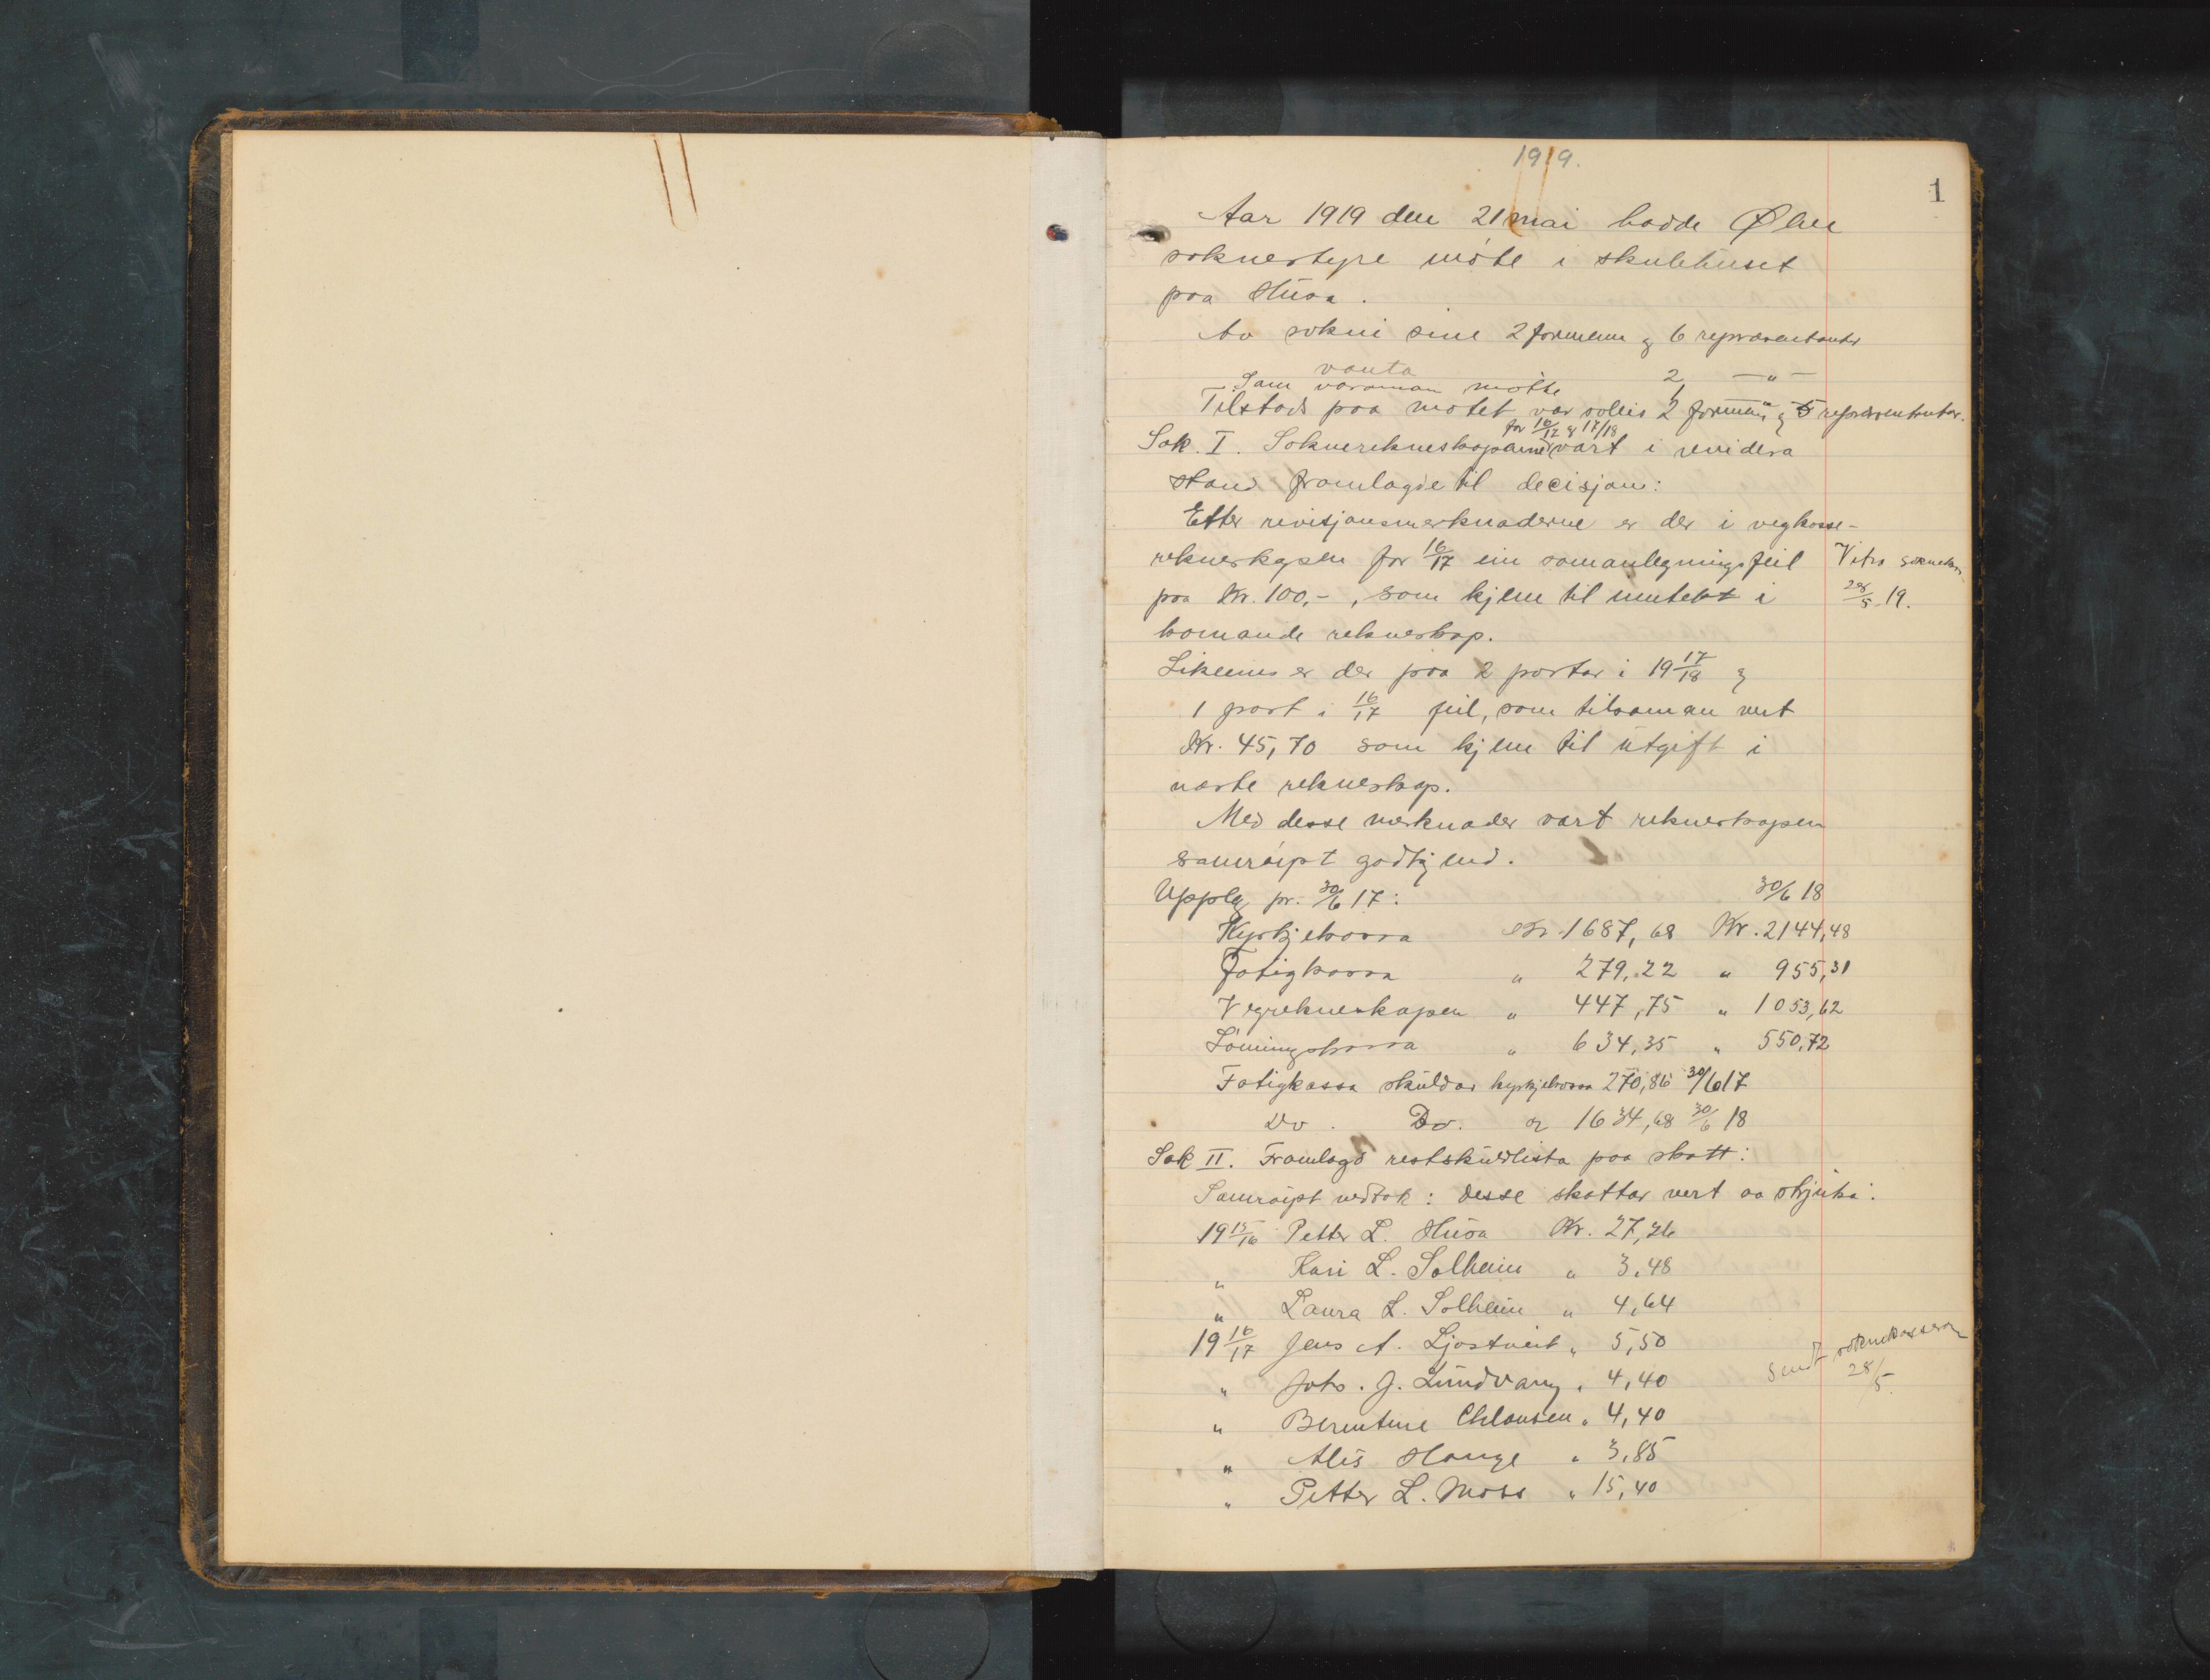 1919.
1
Aar 1919 den 21 mai hadde Ølen
soknestyre møte i skulehuset
paa Huso.
Av sokni sine 2 formenn og 6 representantar
vanta 2 — " —
Som varaman møtte 1 — " —
Tilstads paa møtet var soleis 2 formenn og 5 representantar.
for 16/17 & 17/18
Sak. I. Soknerekneskapane vart i revidera
stand framlagde til decisjon:
Etter revisjonsmerknaderne er der i vegkasse-
rekneskapen for 16/17 ein samanlegningsfeil
paa Kr. 100,- , som kjem til inntekt i
komande rekneskap.
28/5 19.
Likeeins er der paa 2 postar i 19 17/18 og
1 post i 16/17 feil, som tilsaman vert
Kr. 45,70 som kjem til utgift i
næste rekneskap.
Med desse merknader vart rekneskapen
samrøypt godkjend.
Upplag pr. 30/6 17: 30/6 18
Kyrkjekassa Kr. 1687,68 Kr. 2144,48
Fatigkassa " 279,22 " 955,31
Vegrekneskapen " 447,75 " 1053,62
Løningskassa " 634,35 " 550,72
Fatigkassa skuldar kyrkjekassa 270,86 30/6 17
Do. Do. er 1634,68 30/6 18
Sak II. Framlagd restskuldlista paa skatt:
Samrøypt vedtok: desse skattar vert avskrivne:
19 15/16 Petter L. Huso Kr. 27,26
" Kari L. Solheim " 3,48
" Laura L. Solheim " 4,64
19 16/17 Jens A. Ljostveit " 5,50
" Johs. J. Lundvang " 4,40
Sendt soknekasserar
28/5
" Berentine Chlausen " 4,40
" Alis Hauge " 3,85
" Petter L. Moss " 15,40